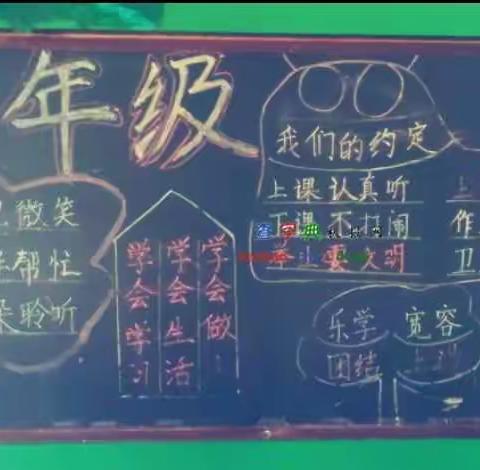 年级
微笑
帮忙
聆听
学会学习
学会生活
学会做
我们的约定
上课认真听 上
下课不打闹 作
文明 卫
查字典
乐学 宽容
团结